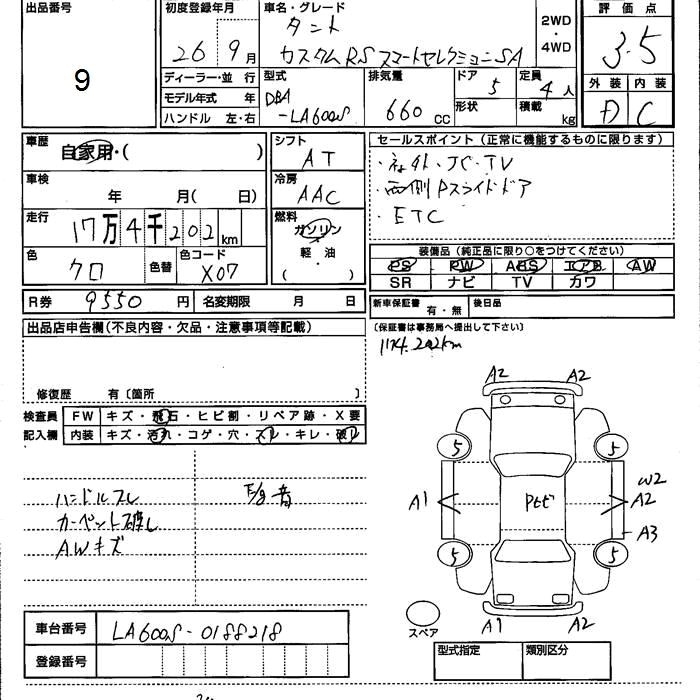 出品番号
9
初度登録年月
26 9月
車名・グレード
タント
カスタムRS スマートセレクションSA
2WD
・
4WD
評価点
3.5
外装 内装
D C
ディーラー・並行
モデル年式 年
ハンドル 左・右
型式
DBA
-LA600S
排気量
660 cc
ドア 5
形状
定員 4人
積載 kg
車歴
自家用・( )
車検
年 月( 日)
走行
17万4千202km
色
クロ
色替
色コード
X07
シフト
AT
冷房
AAC
燃料
ガソリン
・
軽油
( )
セールスポイント(正常に機能するものに限ります)
・社外・JC・TV
・両側Pスライドドア
・ETC
装備品(純正品に限り○をつけてください)
PS PW ABS エアB AW
SR ナビ TV カワ
R券 9550円
名変期限 月 日
新車保証書 有・無
後日品
(保証書は事務局へ提出して下さい)
出品店申告欄(不良内容・欠品・注意事項等記載)
修復歴 有〔箇所 〕
検査員
記入欄
FW キズ・飛石・ヒビ割・リペア跡・X要
内装 キズ・汚れ・コゲ・穴・スレ・キレ・破レ
ハンドルスレ
カーペット破し
AWキズ
F/8 音
A2 A2
5 5
A1
Pセビ
W2
A2
A3
5 5
A1 A2
スペア
車台番号 LA600S-0188218
登録番号
型式指定 類別区分